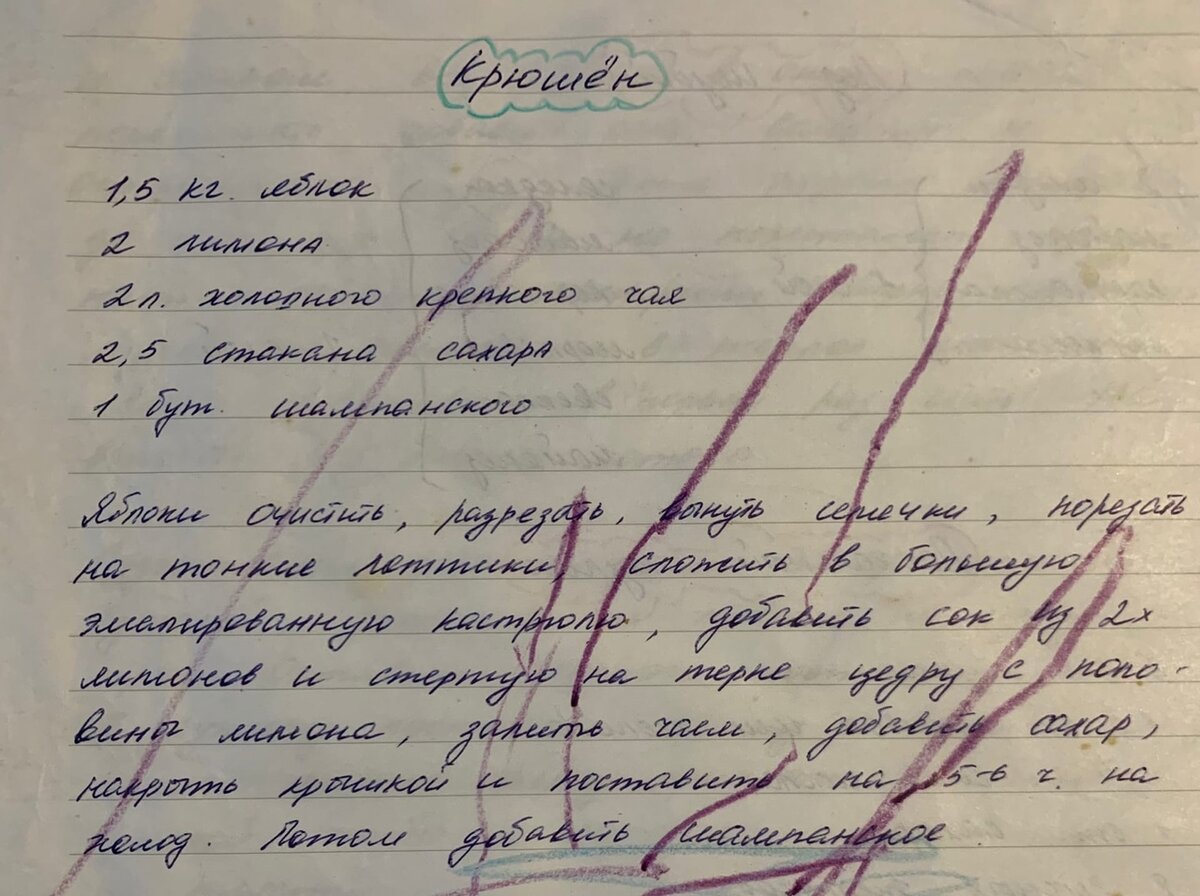 Крюшён
1,5 кг. яблок
2 лимона
2 л. холодного крепкого чая
2,5 стакана сахара
1 бут. шампанского
Яблоки очистить, разрезать, вынуть семечки, порезать
на тонкие ломтики, сложить в большую
эмалированную кастрюлю, добавить сок из 2х
лимонов и стертую на терке цедру с поло-
вины лимона, залить чаем, добавить сахар,
накрыть крышкой и поставить на 5-6 ч. на
холод. Потом добавить шампанское